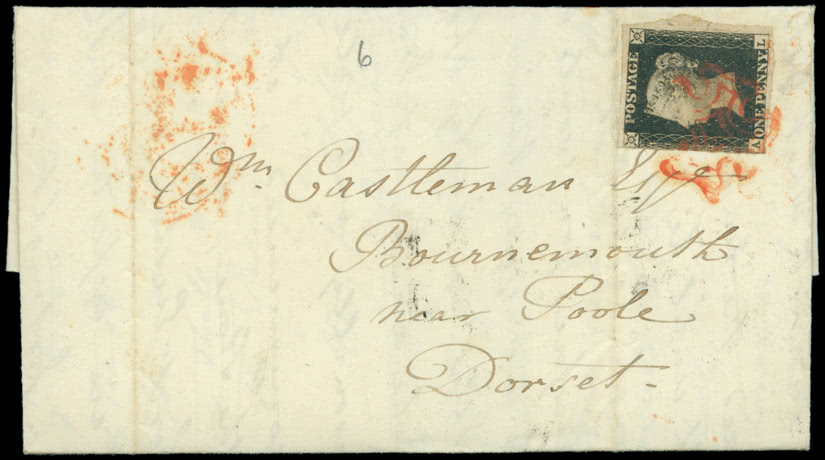 6
POSTAGE
ONE PENNY
A L
Wm. Castleman Esqr
Bournemouth
near Poole
Dorset-